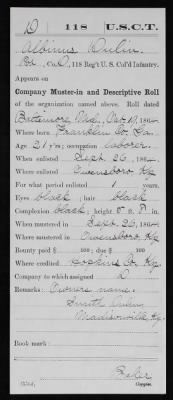 D 118 U.S.C.T.
Albinus Dulin
Pvt, Co. D, 118 Reg't U. S. Col'd Infantry.
Appears on
Company Muster-in and Descriptive Roll
of the organization named above. Roll dated
Baltimore Md, Oct 19, 1864.
Where born Franklin Co. Pa.
Age 21 y'rs; occupation laborer.
When enlisted Sept. 26, 1864.
Where enlisted Owensboro Ky.
For what period enlisted 1 years.
Eyes black; hair black
Complexion black; height 5 ft. 8 in.
When mustered in Sept. 26, 1864.
Where mustered in Owensboro, Ky.
Bounty paid $ 100; due $ 100
Where credited Hopkins Co Ky.
Company to which assigned D
Remarks: Owners name.
Smith Dulin
Madisonville Ky.
Book mark:
Copyist.